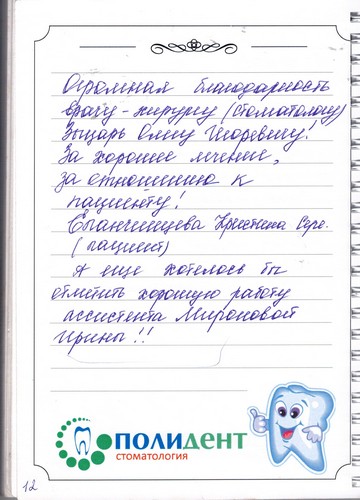 Огромная благодарность
врачу-хирургу (стоматологу)
Зыцарь Олегу Игоревичу!
За хорошее лечение,
за отношению к
пациенту!
Кристина
(пациент)
А еще хотелось бы
отметить хорошую работу
ассистента Мироновой
Ирины!!
ПОЛИДЕНТ
СТОМАТОЛОГИЯ
12